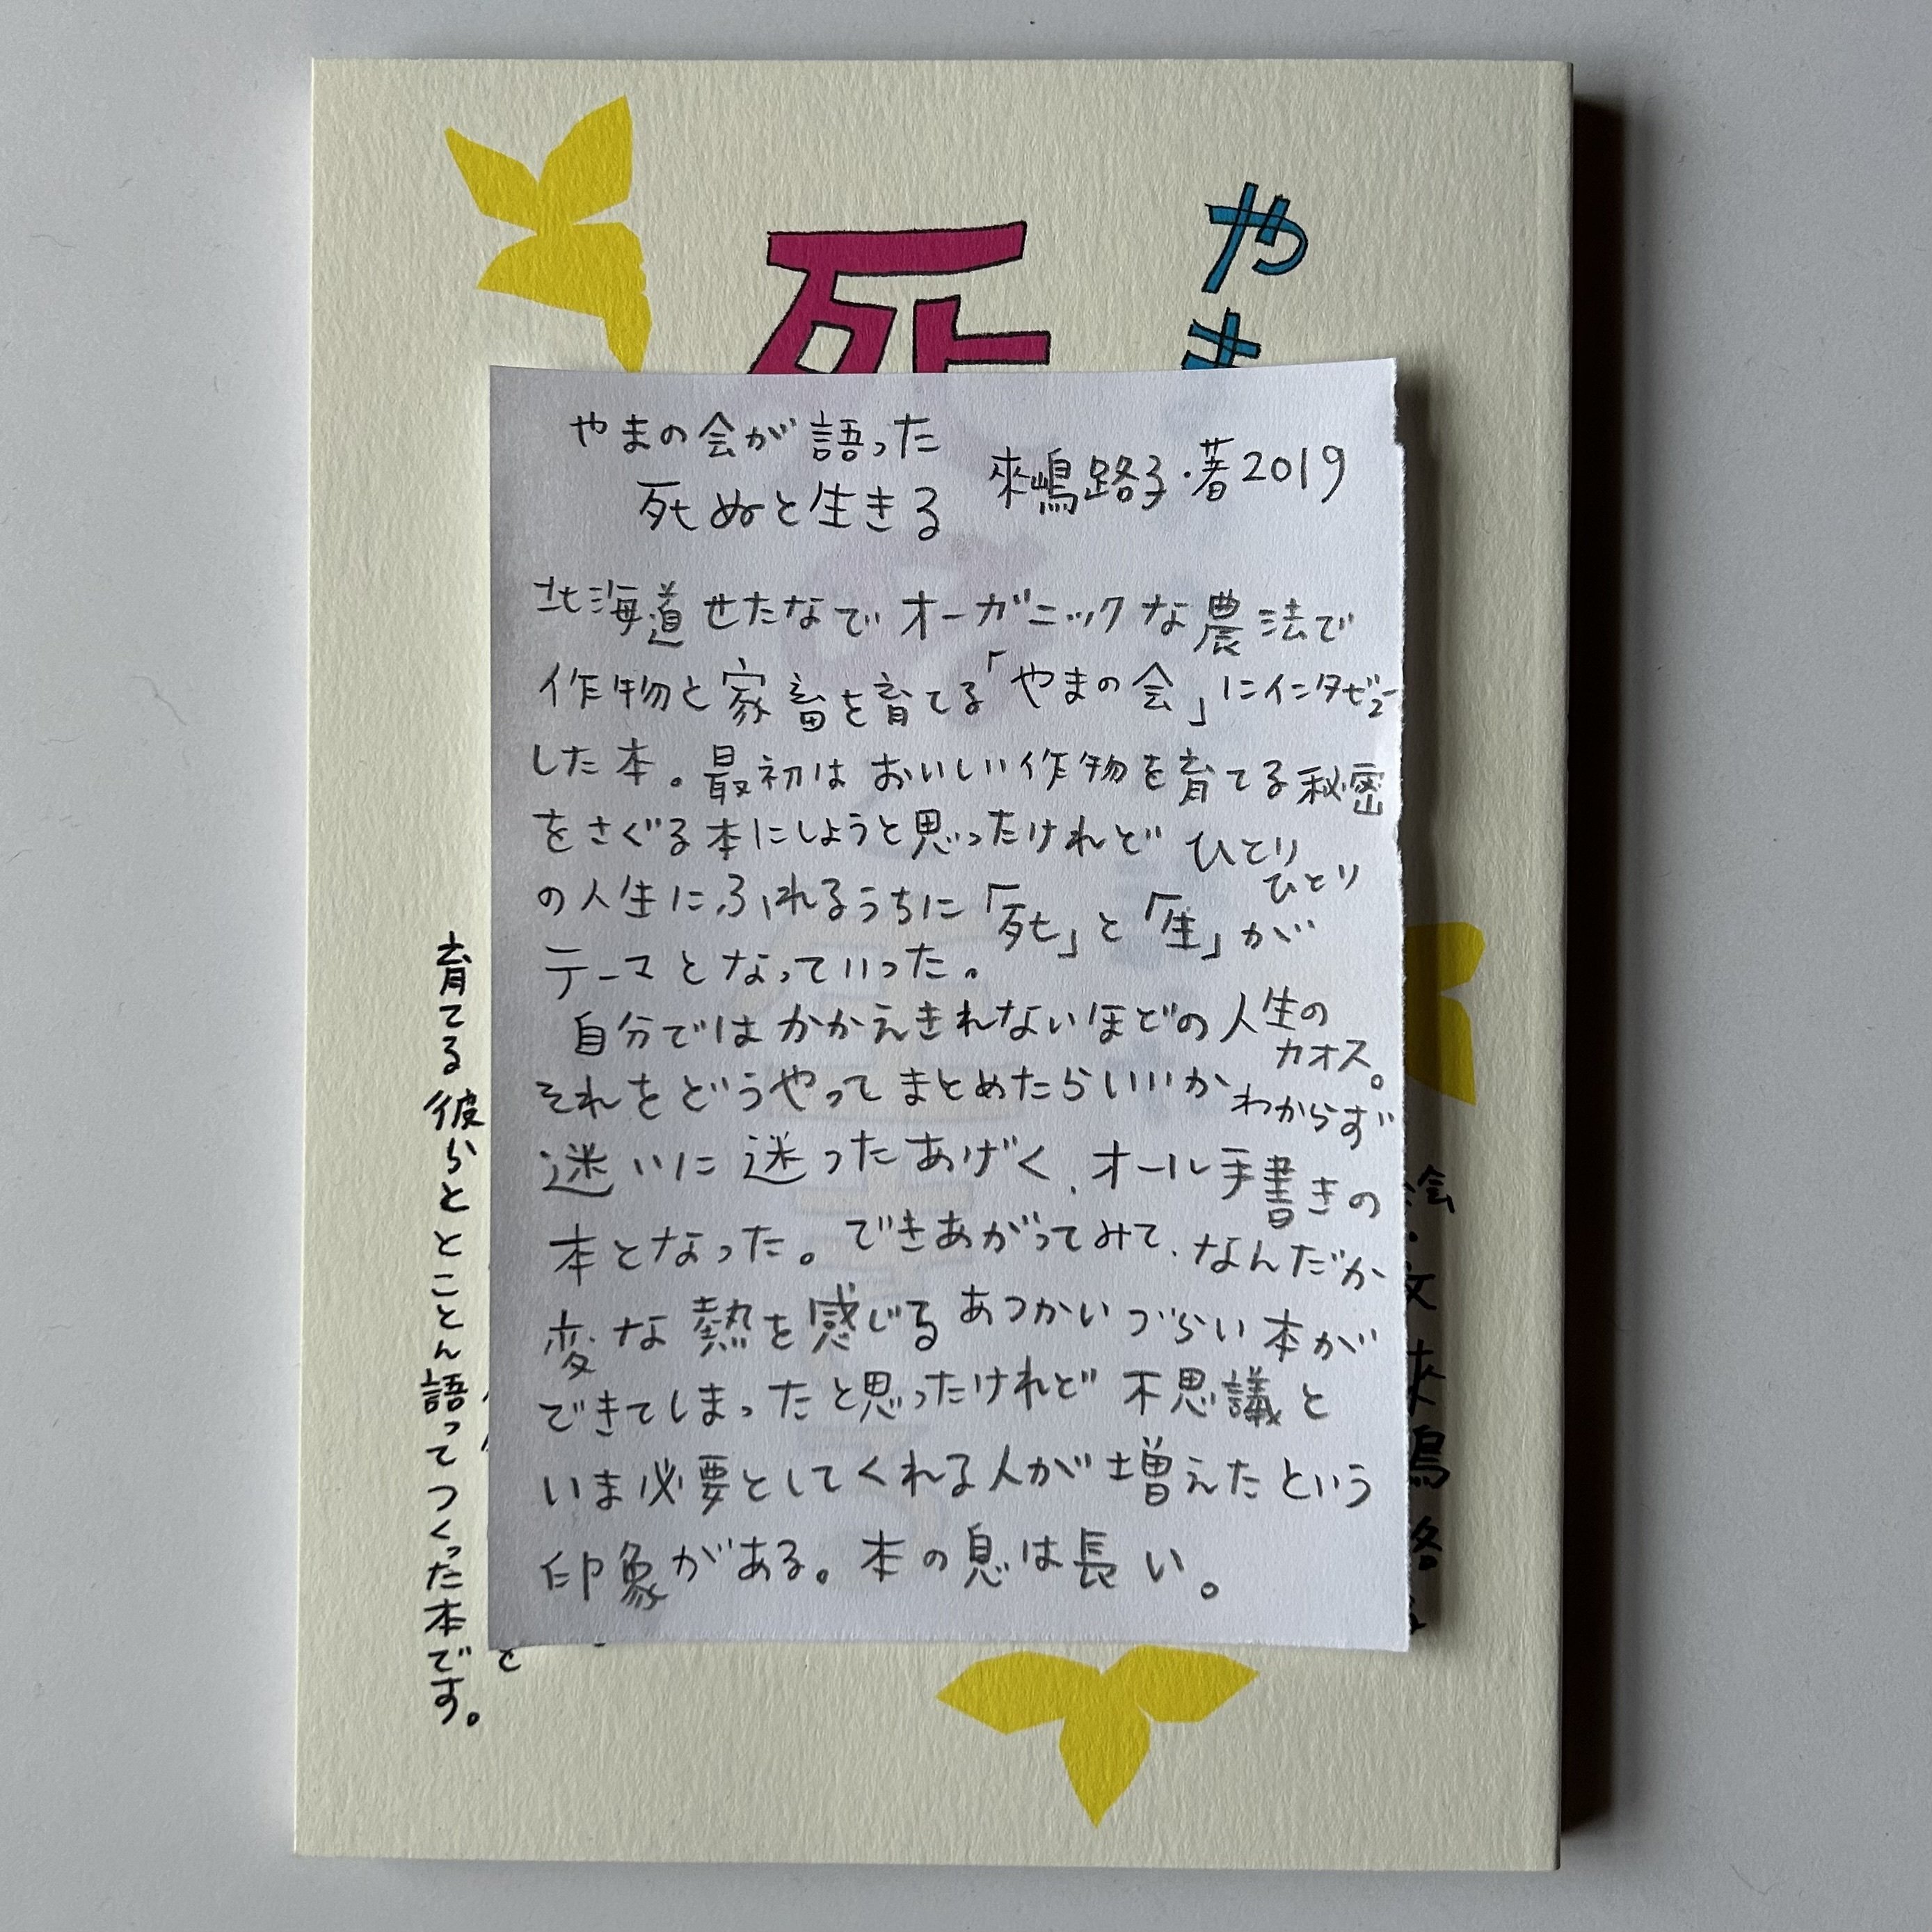 やま
死
やまの会が語った
死ぬと生きる
來嶋路子・著2019
北海道せたなでオーガニックな農法で
作物と家畜を育てる「やまの会」にインタビュー
した本。最初はおいしい作物を育てる秘密
をさぐる本にしようと思ったけれどひとりひとり
の人生にふれるうちに「死」と「生」が
テーマとなっていった。
自分ではかかえきれないほどの人生のカオス。
それをどうやってまとめたらいいかわからず
迷いに迷ったあげく、オール手書きの
本となった。できあがってみて、なんだか
変な熱を感じるあつかいづらい本が
できてしまったと思ったけれど不思議と
いま必要としてくれる人が増えたという
印象がある。本の息は長い。
絵・文 來嶋路
と
育てる彼らととことん語ってつくった本です。